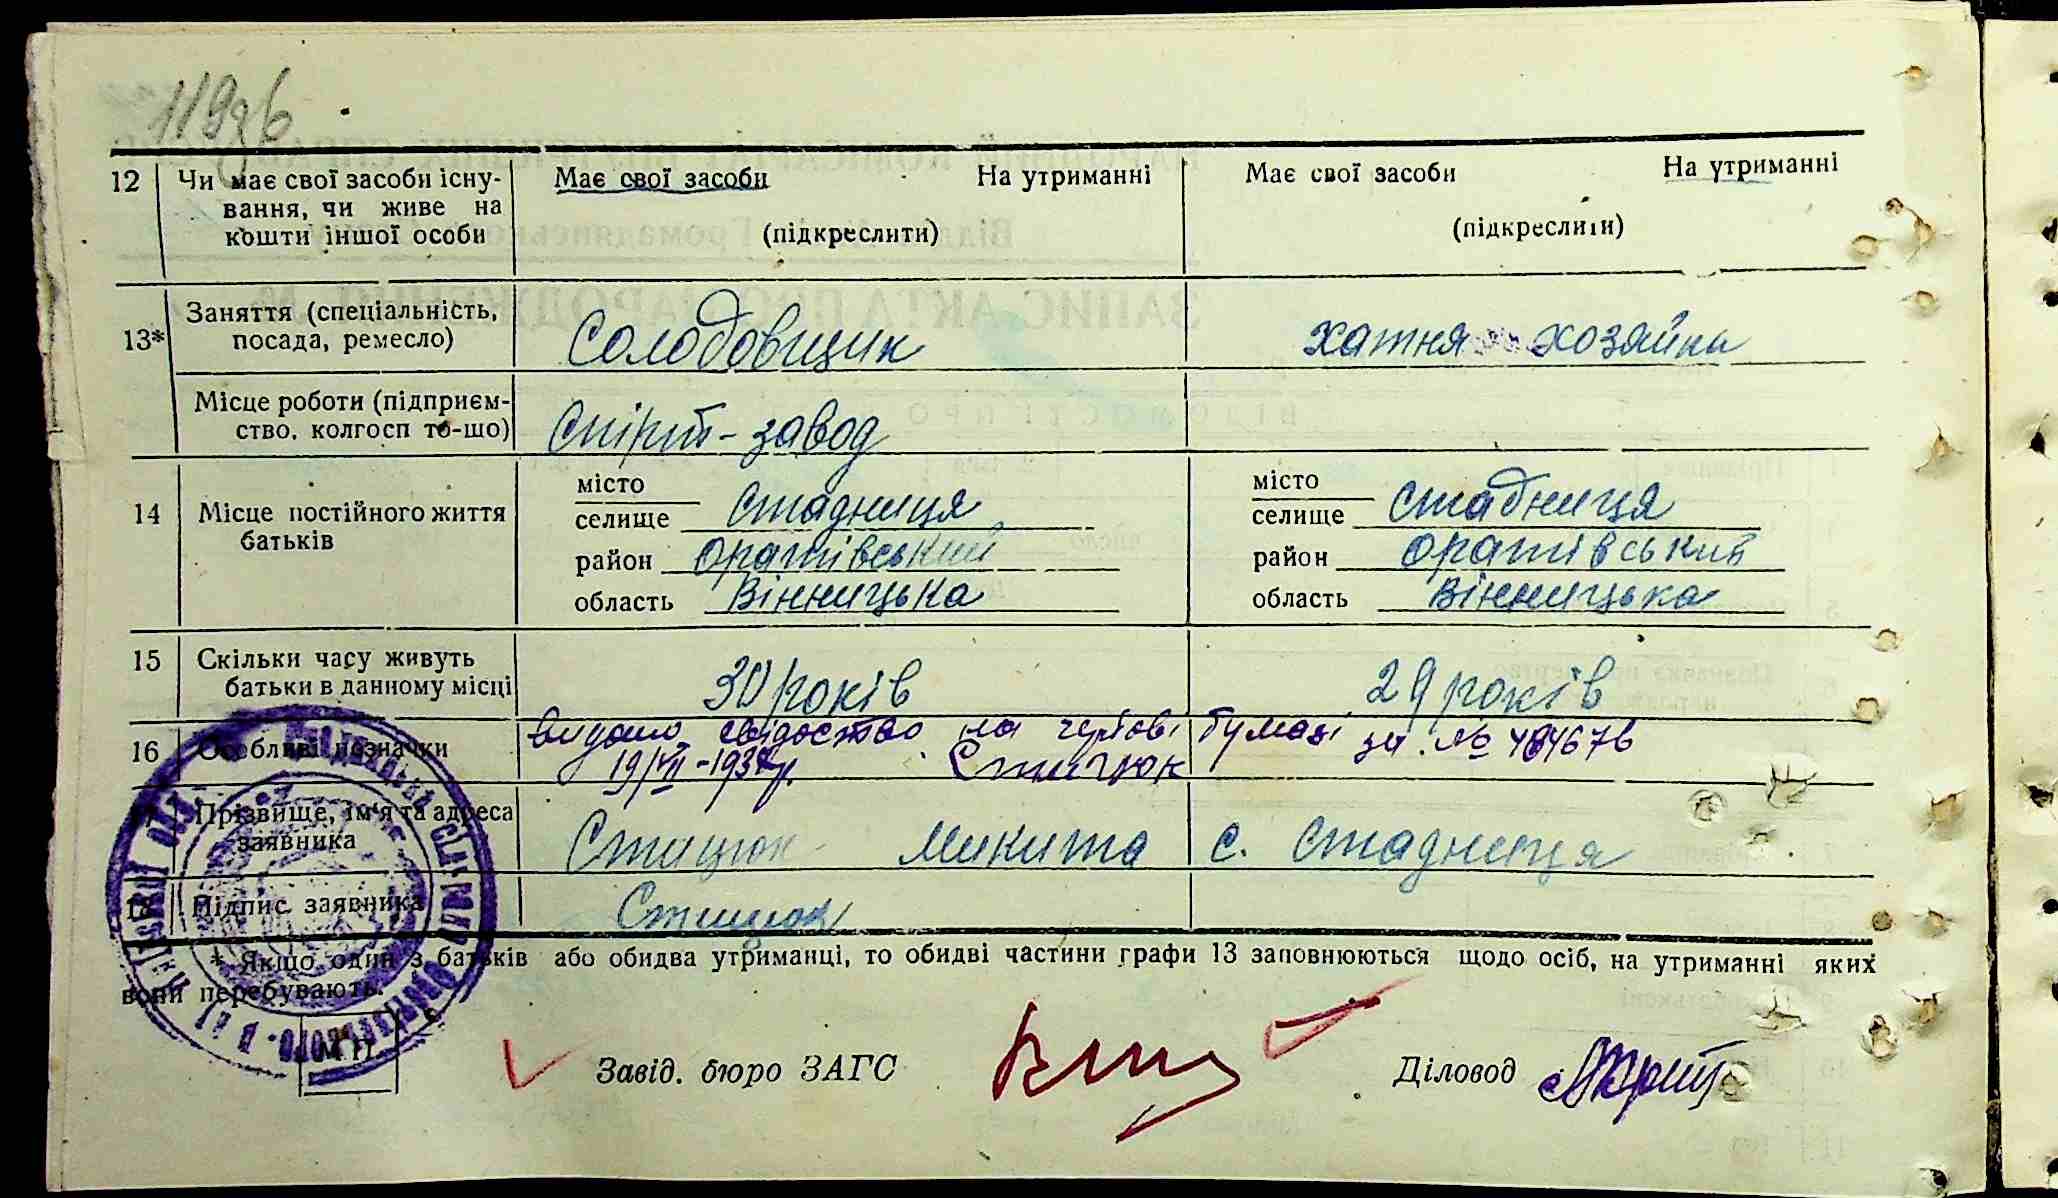 119зв
12 Чи має свої засоби існу- Має свої засоби На утриманні Має свої засоби На утриманні
вання, чи живе на
кошти іншої особи (підкреслити) (підкреслити)
13* Заняття (спеціальність, Солодовщик хатня хозяйка
посада, ремесло)
Місце роботи (підприєм- Спірт-завод
ство, колгосп то-що)
місто місто
14 Місце постійного життя селище Стадниця селище Стадниця
батьків район Оратівський район Оратівський
область Вінницька область Вінницька
15 Скільки часу живуть 30 років 29 років
батьки в данному місці
16 Особливі позначки видано свідоство на гербові бумазі за №
Стицюк
17 Прізвище, ім'я та адреса Стицюк Микита с. Стадниця
заявника
18 Підпис заявника Стицюк
* Якщо один з батьків або обидва утриманці, то обидві частини графи 13 заповнюються щодо осіб, на утриманні яких
вони перебувають.
М П
Завід. бюро ЗАГС Діловод